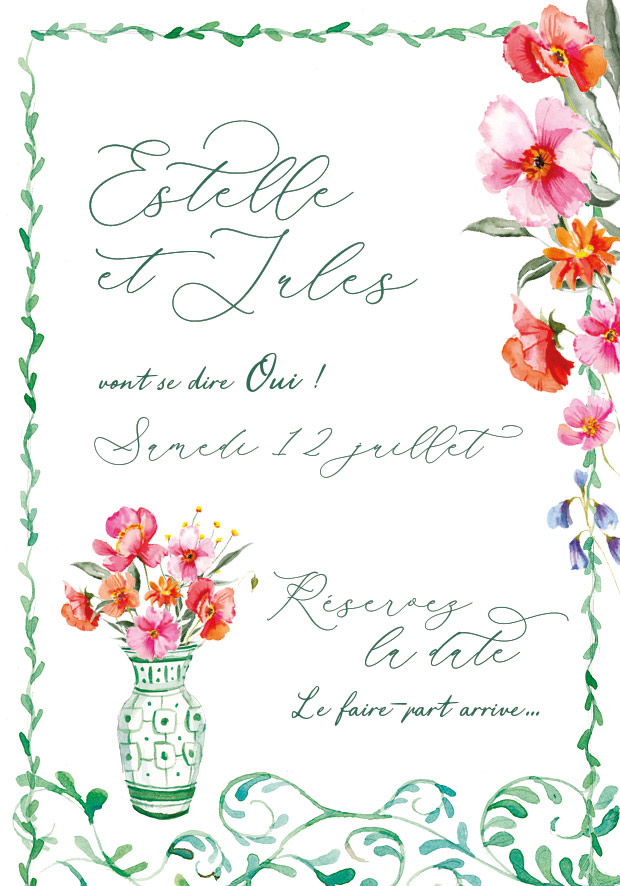 Estelle
et Jules
vont se dire Oui !
Samedi 12 juillet
Réservez
la date
Le faire-part arrive...